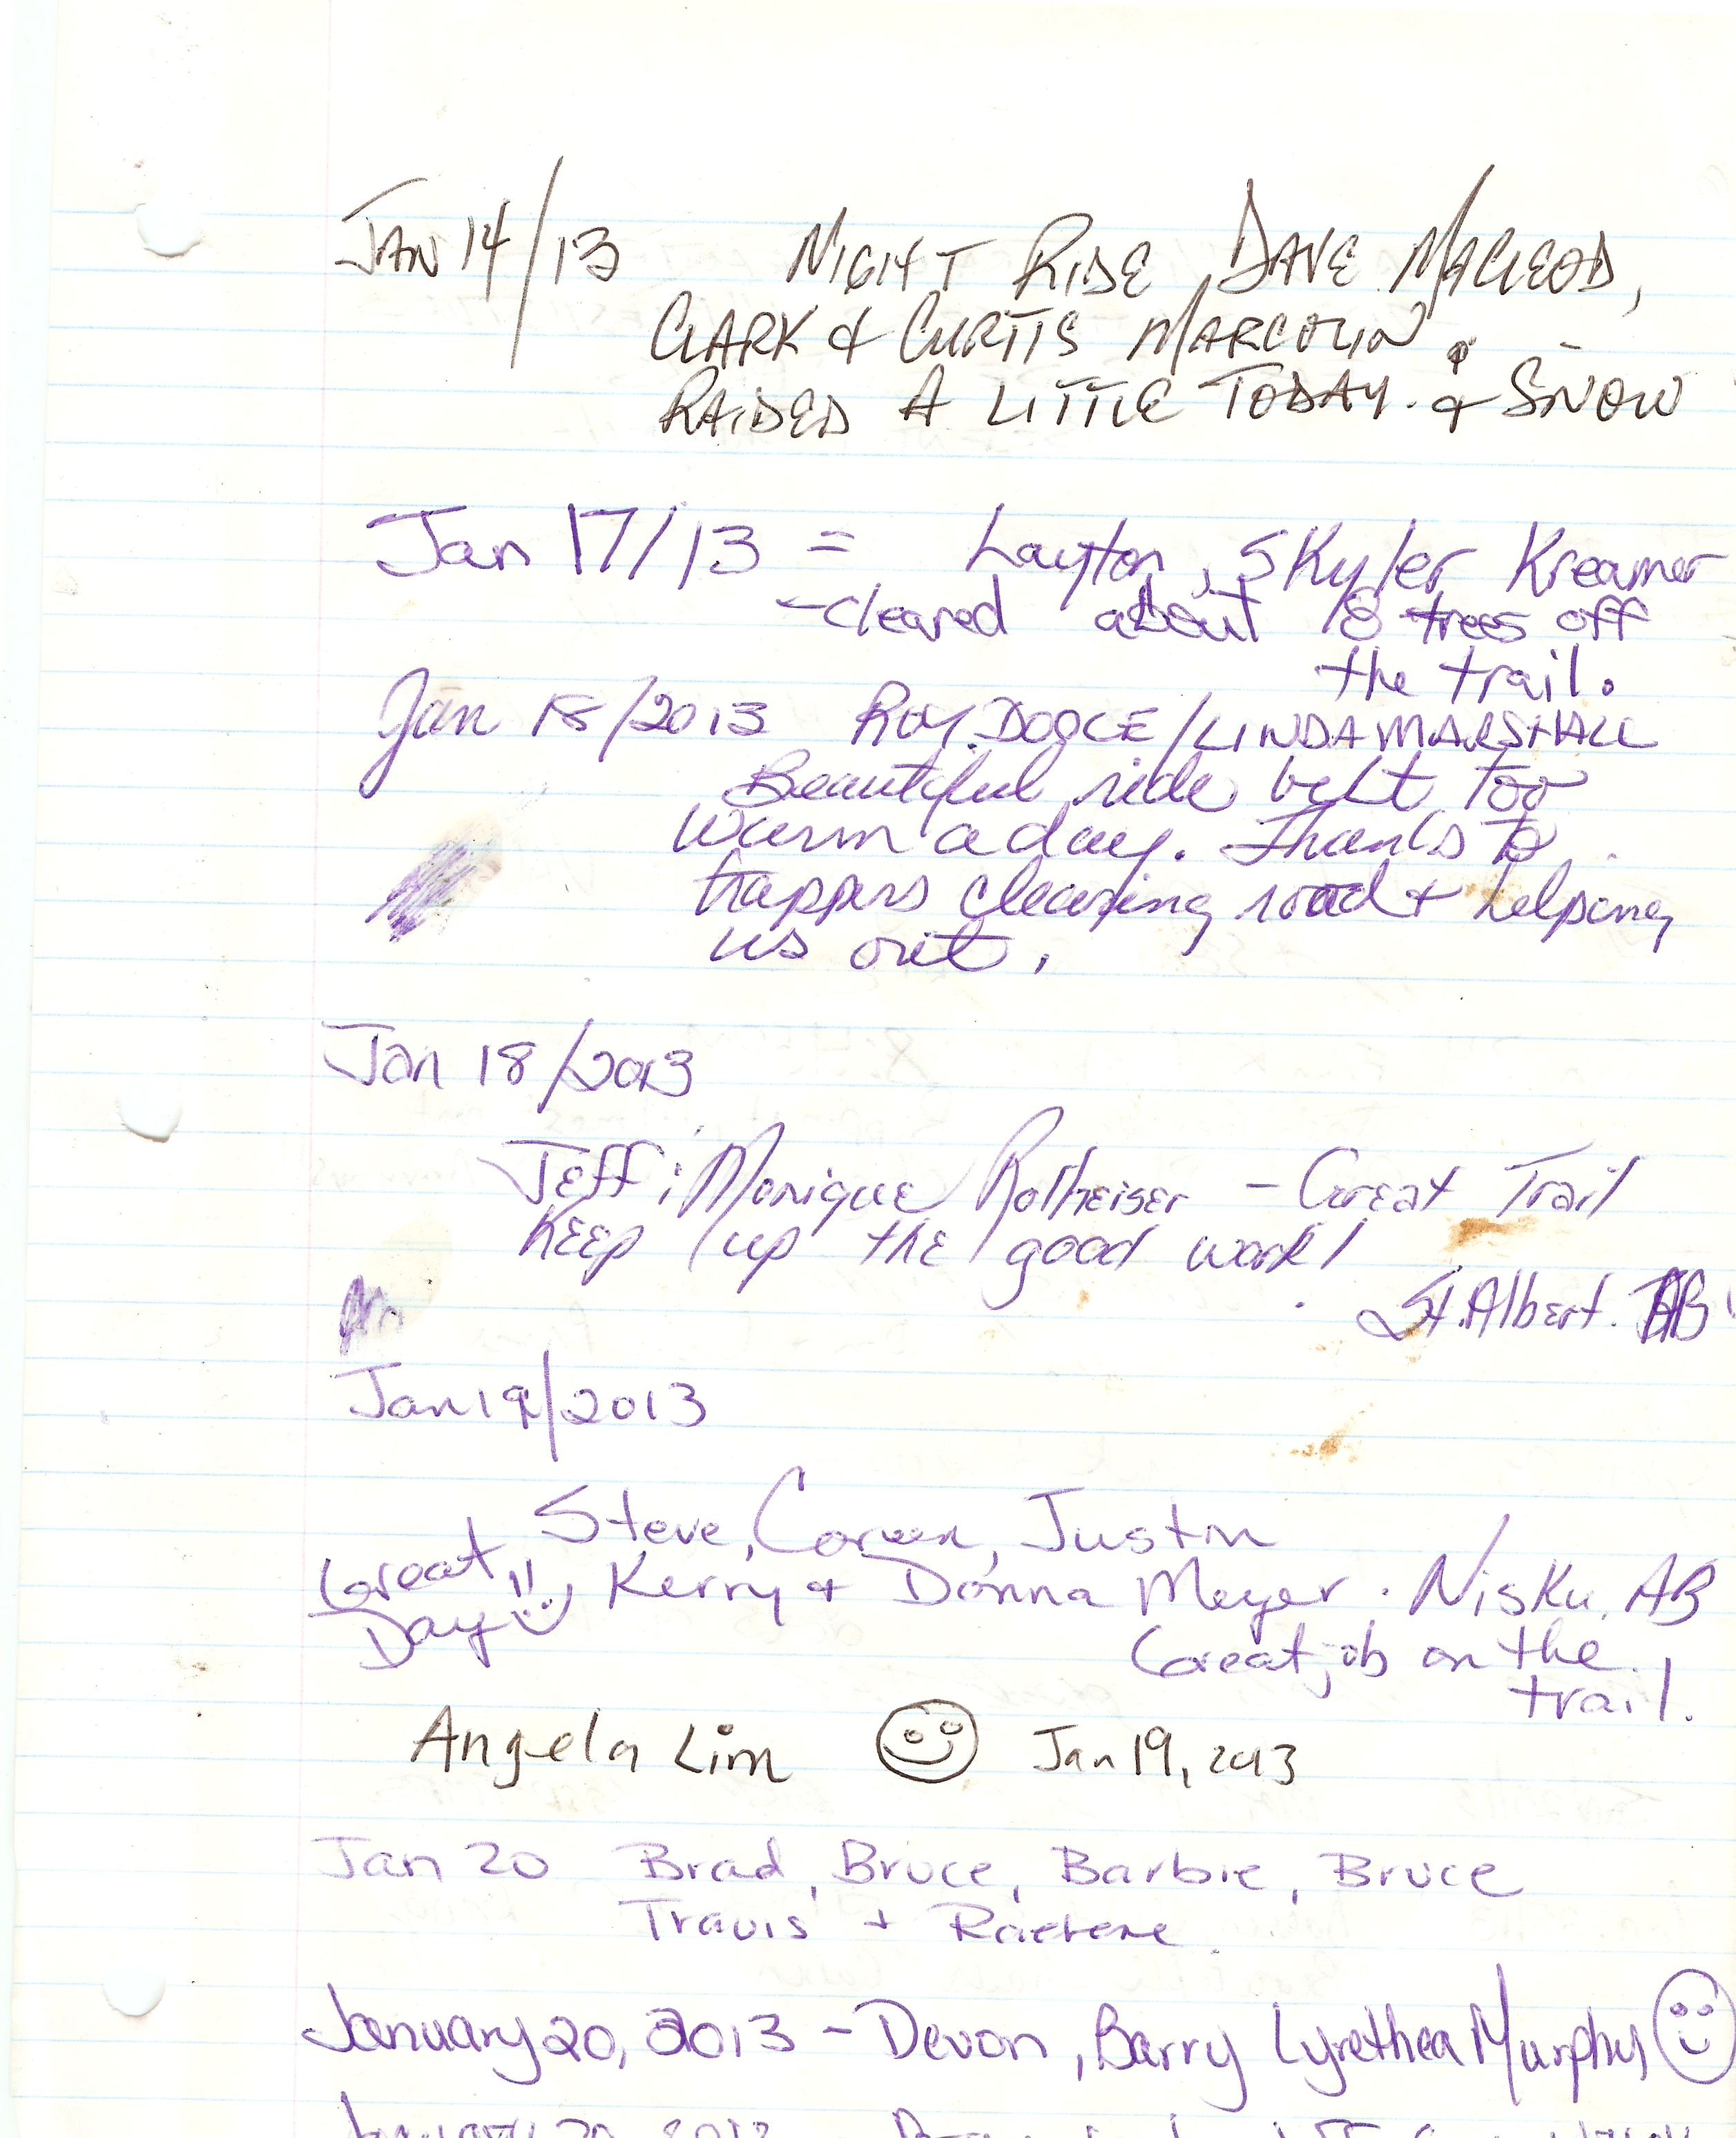 JAN 14/13 NIGHT RIDE DAVE MACLEOD,
CLARK & CURTIS MARCOLIN.
RAIDED A LITTLE TODAY. & SNOW
Jan 17/13 = Layton, Skyler Kreamer
- cleared about 18 trees off
the trail.
Jan 18/2013 ROY DOOCE/LINDA MARSHALL
Beautiful ride belt too
warm a day. Thanks to
trappers clearing road + helping
us out.
Jan 18/2013
Jeff & Monique Rotheiser - Great Trail
Keep up the good work!
St. Albert. AB
Jan 19/2013
Steve, Coreen, Justin
Great!! Kerry + Donna Meyer. Nisku, AB
Day
Great job on the
trail.
Angela Lim Jan 19, 2013
Jan 20 Brad, Bruce, Barbie, Bruce
Travis + Raelene.
January 20, 2013 - Devon, Barry Lyrethea Murphy